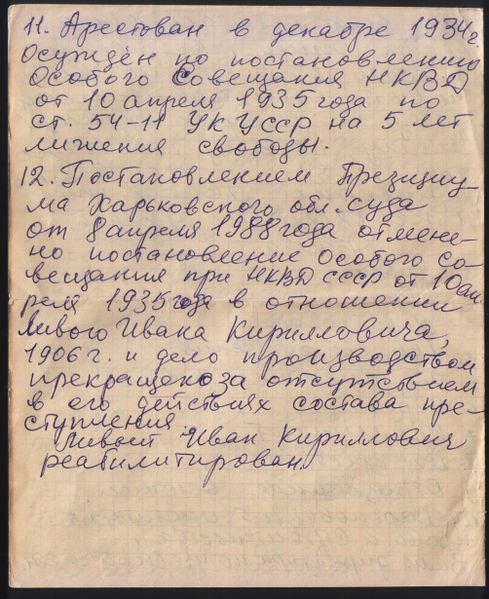 11. Арестован в декабре 1934 г.
Осуждён по постановлению
Особого Совещания НКВД
от 10 апреля 1935 года по
ст. 54-11 УК УССР на 5 лет
лишения свободы.
12. Постановлением Президиу-
ма Харьковского обл. суда
от 8 апреля 1988 года отмене-
но постановление Особого Со
вещания при НКВД СССР от 10 ап
реля 1935 года в отношении
Ливого Ивана Кирилловича,
1906 г. и дело производством
прекращено за отсутствием
в его действиях состава пре-
ступления
Ливый Иван Кириллович
реабилитирован